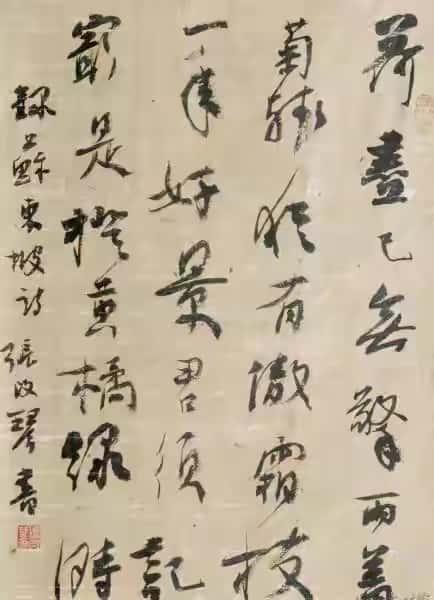 荷盡已無擎雨蓋
菊殘猶有傲霜枝
一年好景君須記
最是橙黄橘緑時
録蘇東坡詩 張改琴書